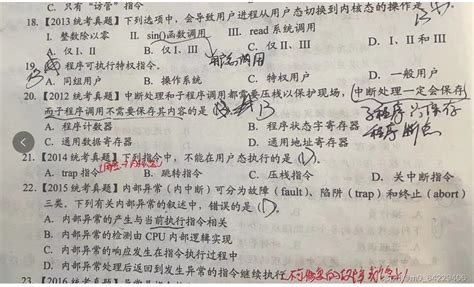 C. 只有“访管”指令
18. 【2013 统考真题】下列选项中，会导致用户进程从用户态切换到内核态的操作是 B
I. 整数除以零 II. sin()函数调用 III. read 系统调用
A. 仅 I、II B. 仅 I、III C. 仅 II、III D. I、II 和 III
19. 程序可执行特权指令。
B A. 同组用户 B. 操作系统 C. 特权用户 D. 一般用户
20. 【2012 统考真题】中断处理和子程序调用都需要压栈以保护现场，中断处理一定会保存
而子程序调用不需要保存其内容的是 B
子程序只保存
A. 程序计数器 B. 程序状态字寄存器
程序断点
C. 通用数据寄存器 D. 通用地址寄存器
21. 【2014 统考真题】下列指令中，不能在用户态执行的是 D
A. trap 指令 B. 跳转指令 C. 压栈指令 D. 关中断指令
22. 【2015 统考真题】内部异常（内中断）可分为故障（fault）、陷阱（trap）和终止（abort）
三类。下列有关内部异常的叙述中，错误的是 D
A. 内部异常的产生与当前执行指令相关
B. 内部异常的检测由 CPU 内部逻辑实现
C. 内部异常的响应发生在指令执行过程中
D. 内部异常处理后返回到发生异常的指令继续执行
23. 【2016 统考真题】